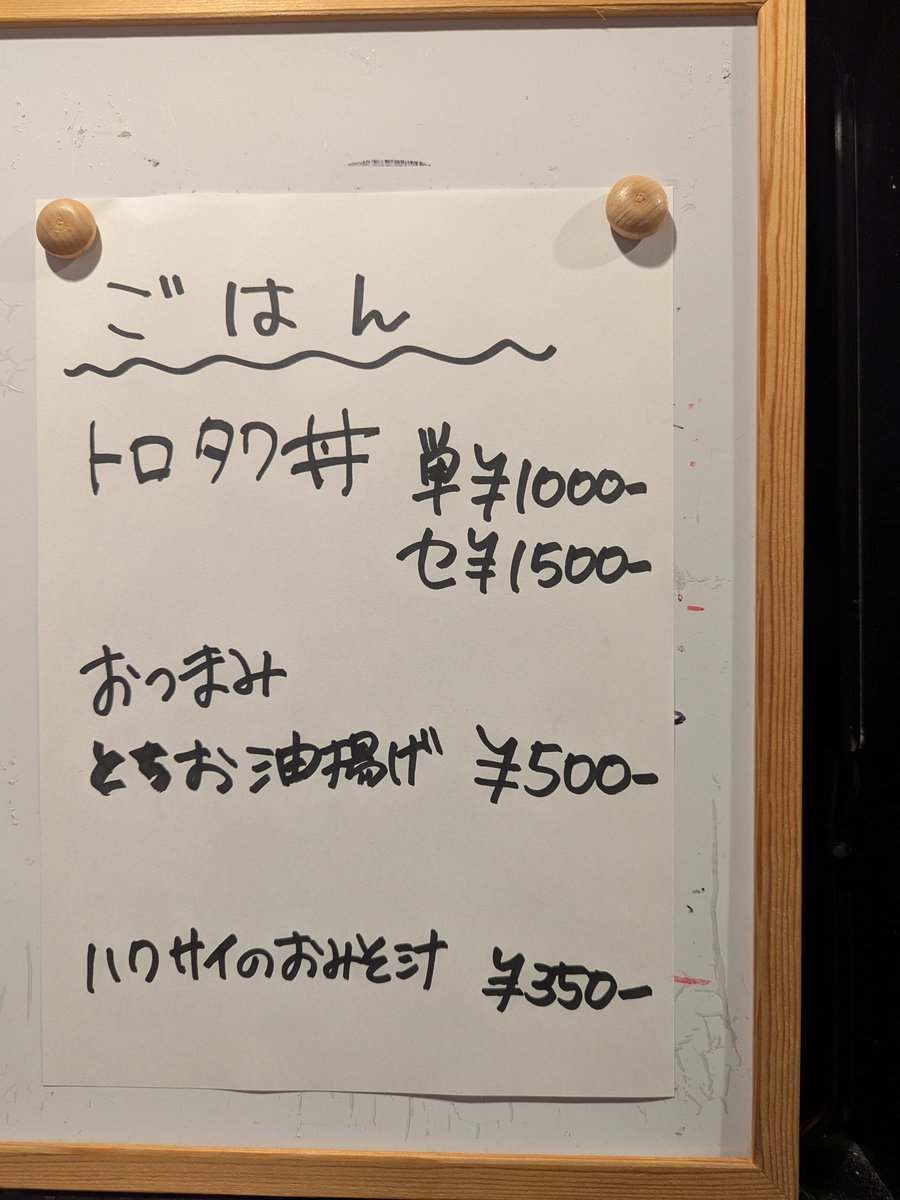 ごはん
トロタク丼 単¥1000-
セ¥1500-
おつまみ
とちお油揚げ ¥500-
ハクサイのおみそ汁 ¥350-